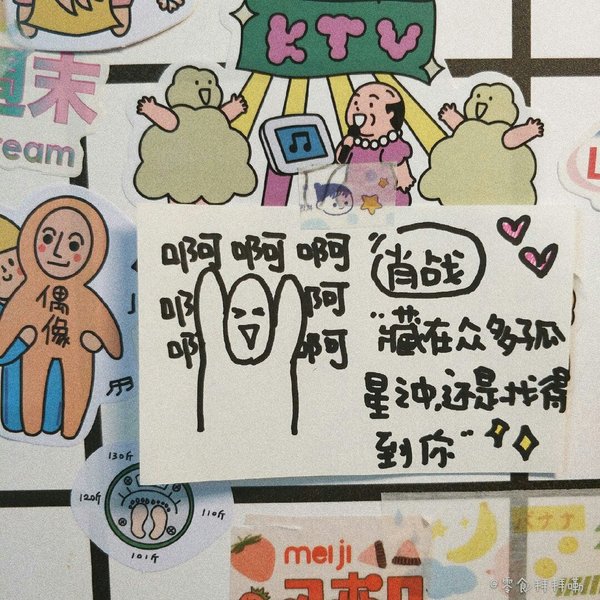 KTV
週末
ream
偶像
啊啊啊
啊 啊
啊 啊
肖战
"藏在众多孤
星冲,还是找得
到你"
130斤
120斤
110斤
101斤
meiji
バナナ
L
@零食拜拜嘞